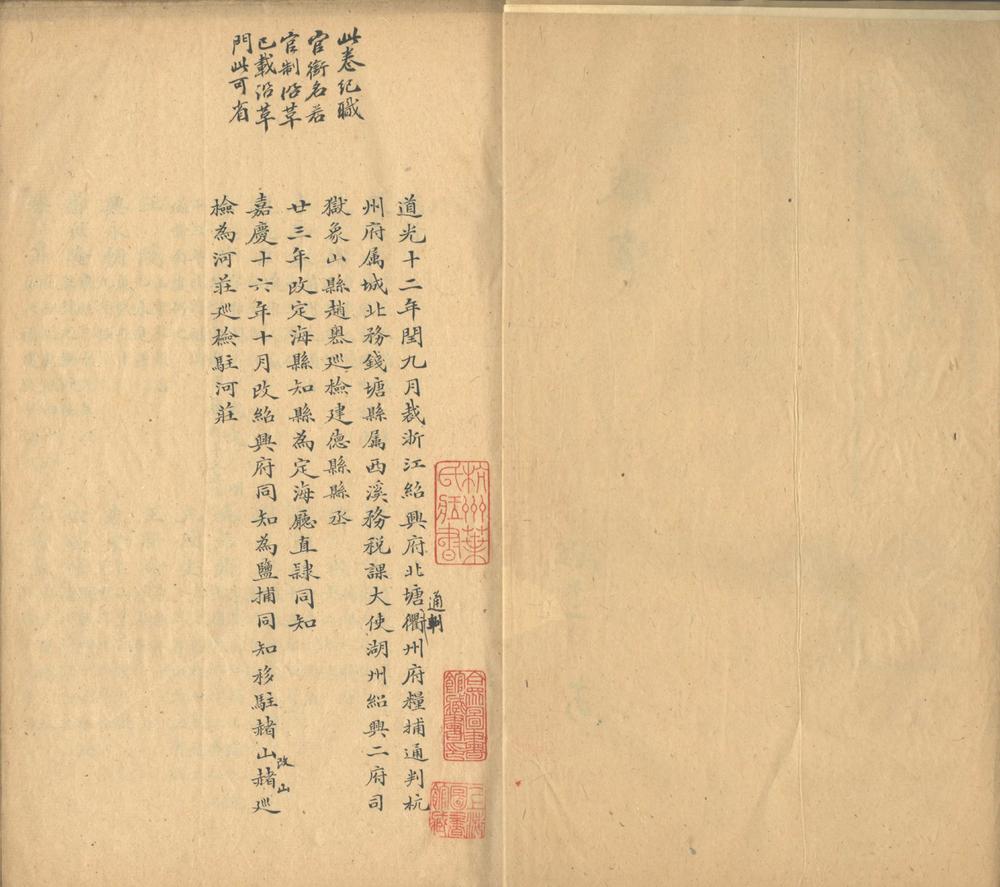 此卷紀職
官銜名若
官制沿革
已載沿革
門此可省
道光十二年閏九月裁浙江紹興府北塘衢州府糧捕通判杭
通判
州府属城北務錢塘縣属西溪務税課大使湖州紹興二府司
獄象山縣趙嶴廵檢建德縣縣丞
廿三年改定海縣知縣為定海廳直隸同知
嘉慶十六年十月改紹興府同知為鹽捕同知移駐赭山赭廵
改山
檢為河莊廵檢駐河莊
杭州葉
氏藏書
合眾圖書
館藏書印
上海
圖書
館藏